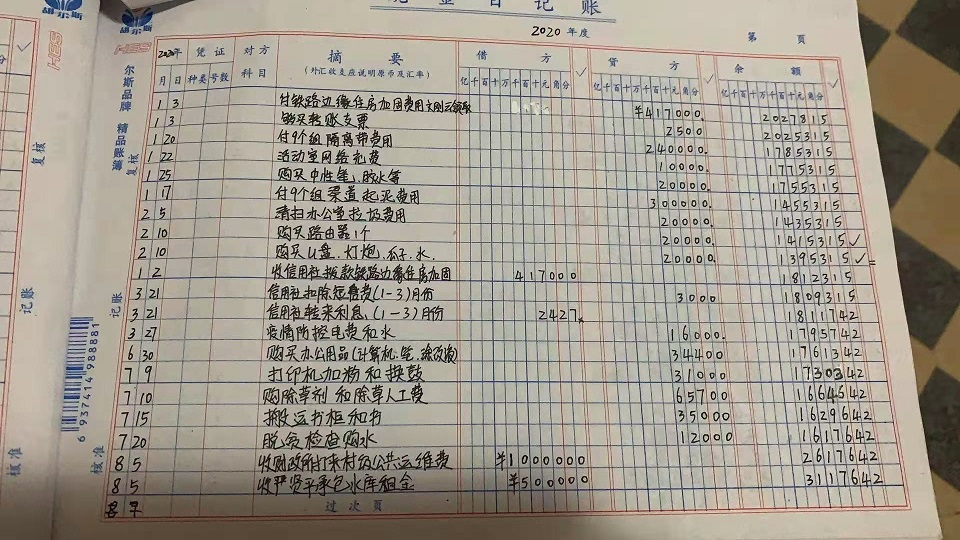 胡尔斯
现金日记账
2020 年度
第 页
2020年 凭证 对方 摘要 借方 √ 贷方 √ 余额 √
月 日 种类 号数 科目 (外汇收支应说明原币及汇率) 亿千百十万千百十元角分 亿千百十万千百十元角分 亿千百十万千百十元角分
1 3 付铁路边缘住房加固费用 ¥417000. 2027815
1 3 购买转账支票 2500 2025315
1 20 付9个组隔离带费用 240000. 1785315
1 22 活动室网络充费 10000. 1775315
1 25 购买中性笔、胶水等 20000. 1755315
1 17 付9个组渠道起泥费用 300000. 1455315
2 5 清扫办公室垃圾费用 20000. 1435315
2 10 购买路由器1个 20000. 1415315 √
2 10 购买U盘、灯炮、瓜子、水. 20000. 1395315 √
1 2 收信用社拨款铁路边缘住房加固 417000 1812315
3 21 信用社扣除短信费(1-3)月份 3000 1809315
3 21 信用社转来利息(1-3)月份 2427 1811742
3 27 疫情防控电费和水 16000. 1795742
6 30 购买办公用品(计算机、笔、涂改液) 34400 1761342
7 9 打印机加粉和换鼓 31000 1730342
7 10 购除草剂和除草人工费 65700 1664642
7 15 搬运书柜和书 35000 1629642
7 20 脱贫检查购水 12000 1617642
8 5 收财政所打来村级公共运维费 ¥1000000 2617642
8 5 收严贤平承包水库租金 ¥500000 3117642
过次页
胡尔斯
HES
斯尔胡牌品 精品票簿
复核
记账
核准
6 937414 988881
复核
记账
核准
HES